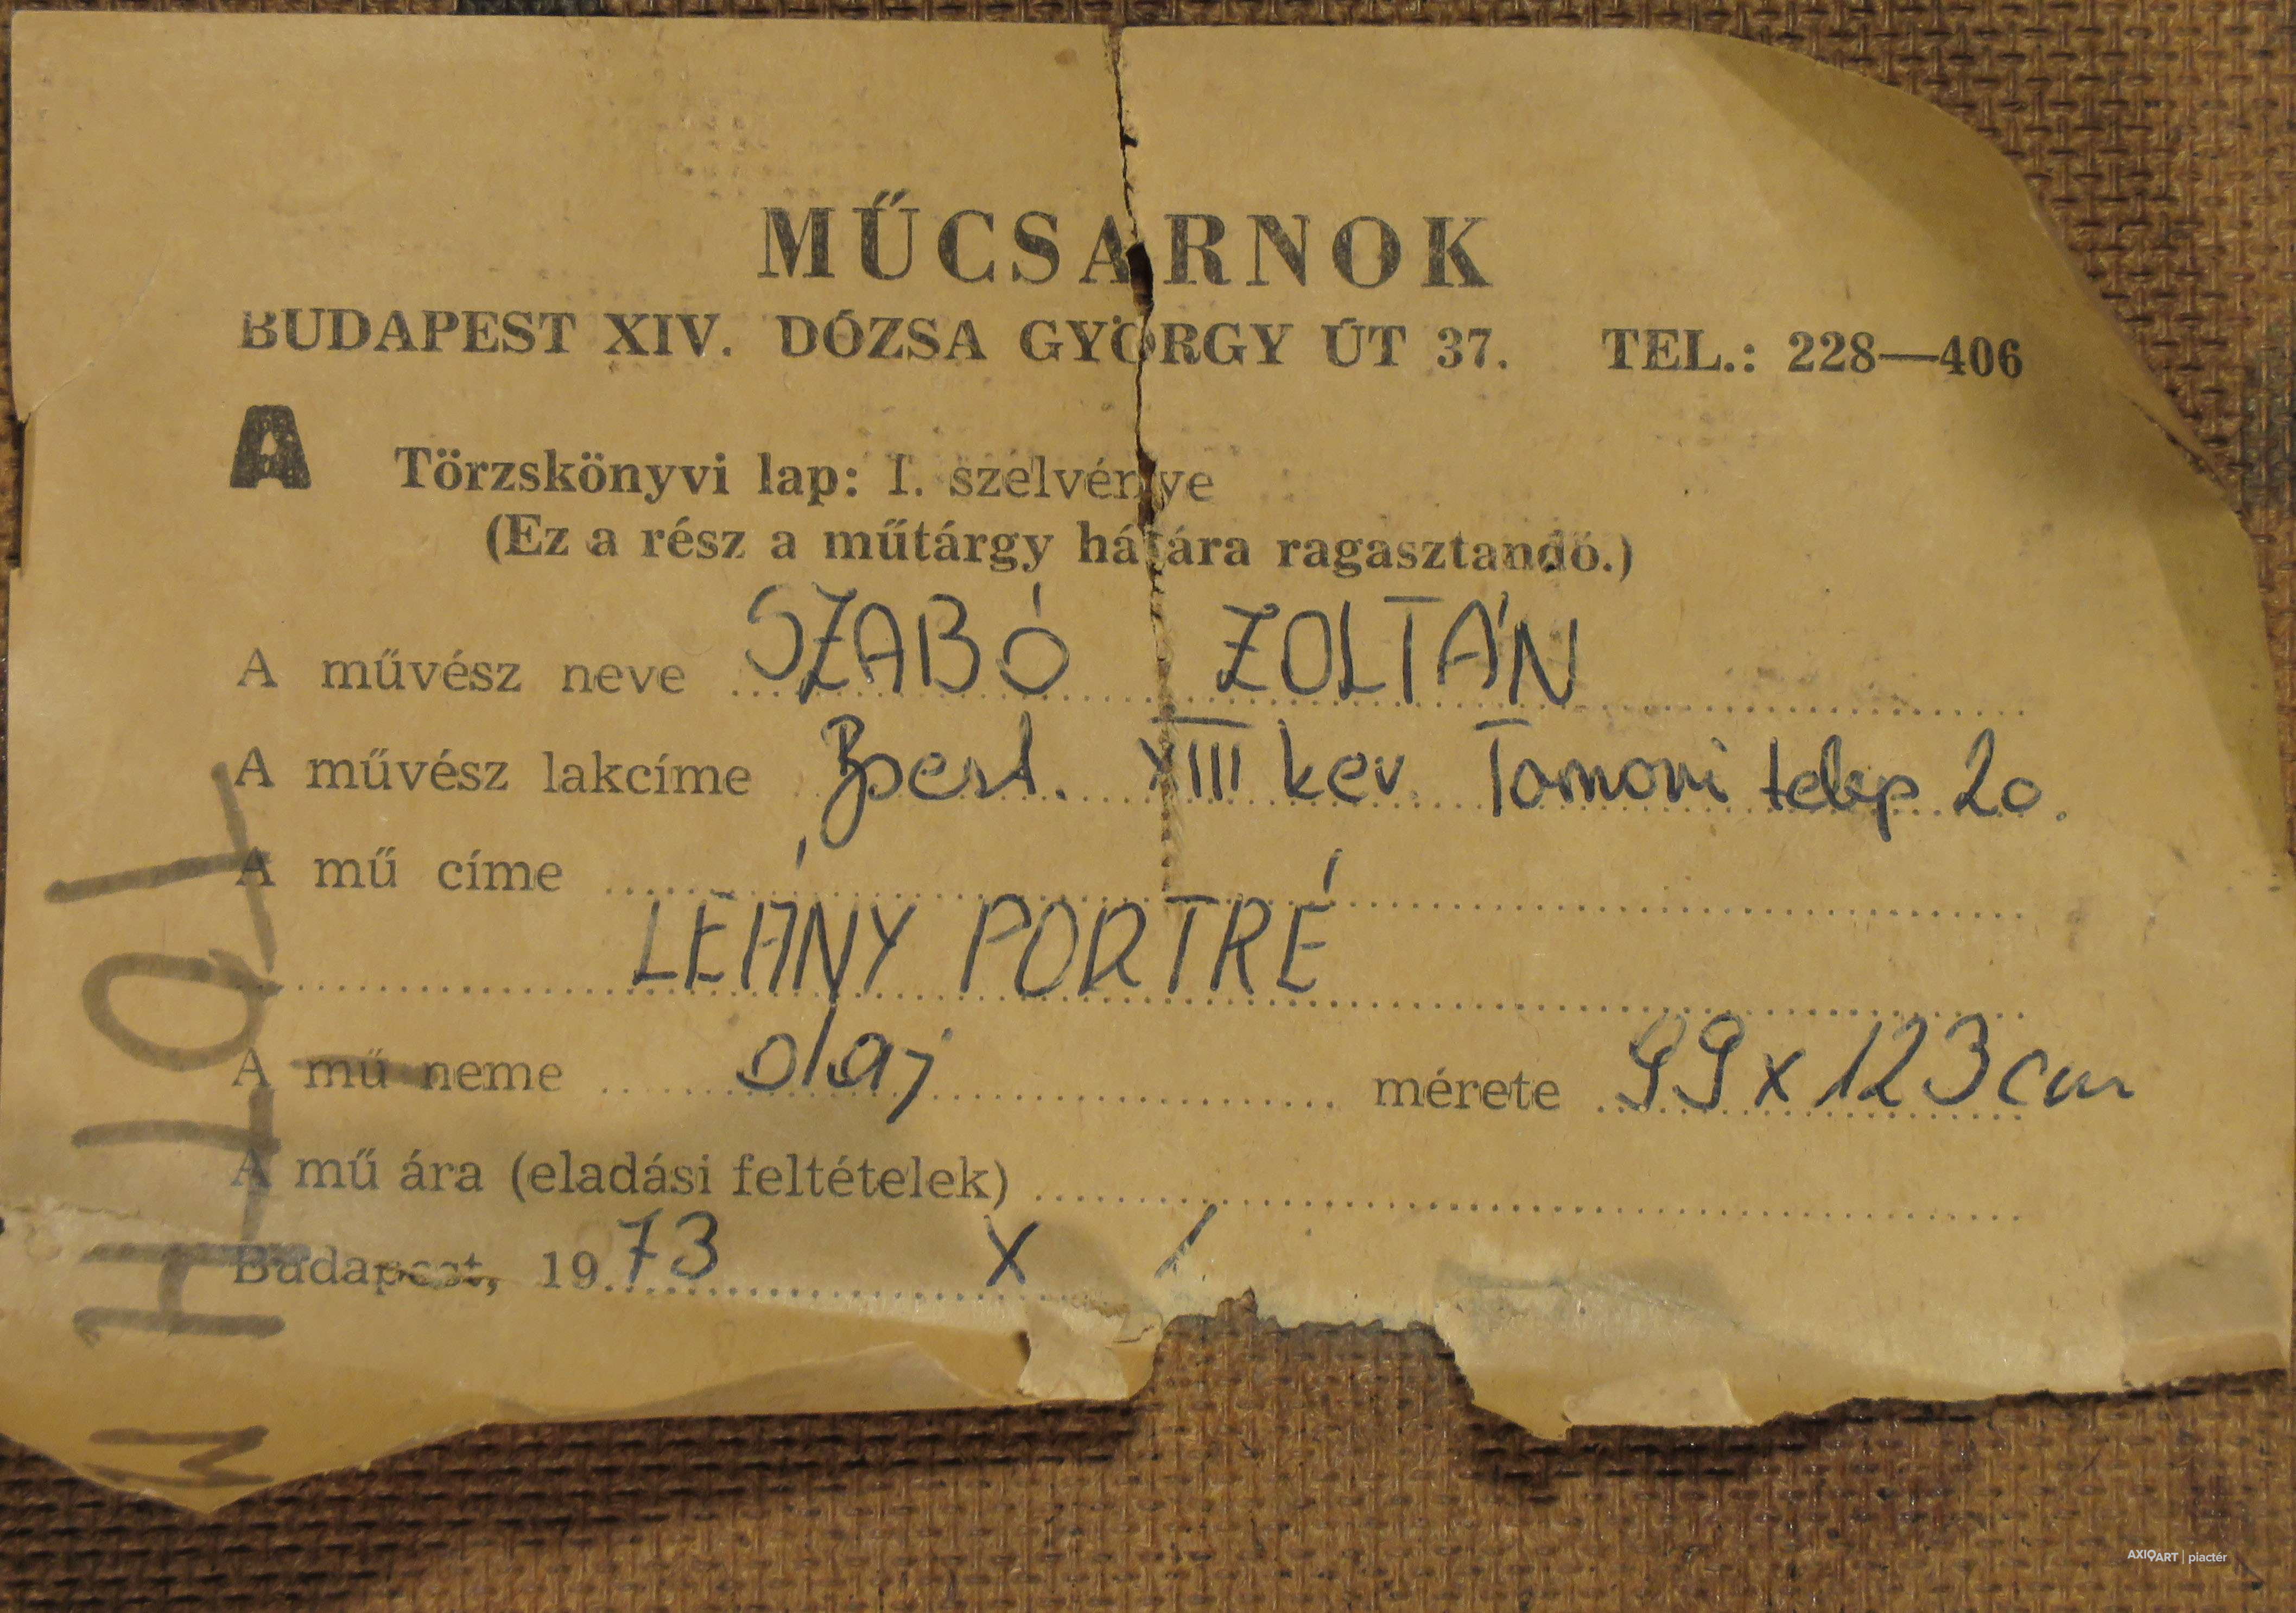 MŰCSARNOK
BUDAPEST XIV. DÓZSA GYÖRGY ÚT 37. TEL.: 228—406
A Törzskönyvi lap: I. szelvénye
(Ez a rész a műtárgy hátára ragasztandó.)
A művész neve SZABÓ ZOLTÁN
A művész lakcíme Bpest. XIII ker. Tomori telep 20.
A mű címe
LEÁNY PORTRÉ
A mű neme olaj mérete 99x123cm
A mű ára (eladási feltételek)
Budapest, 1973 X
AXIOART | piactér